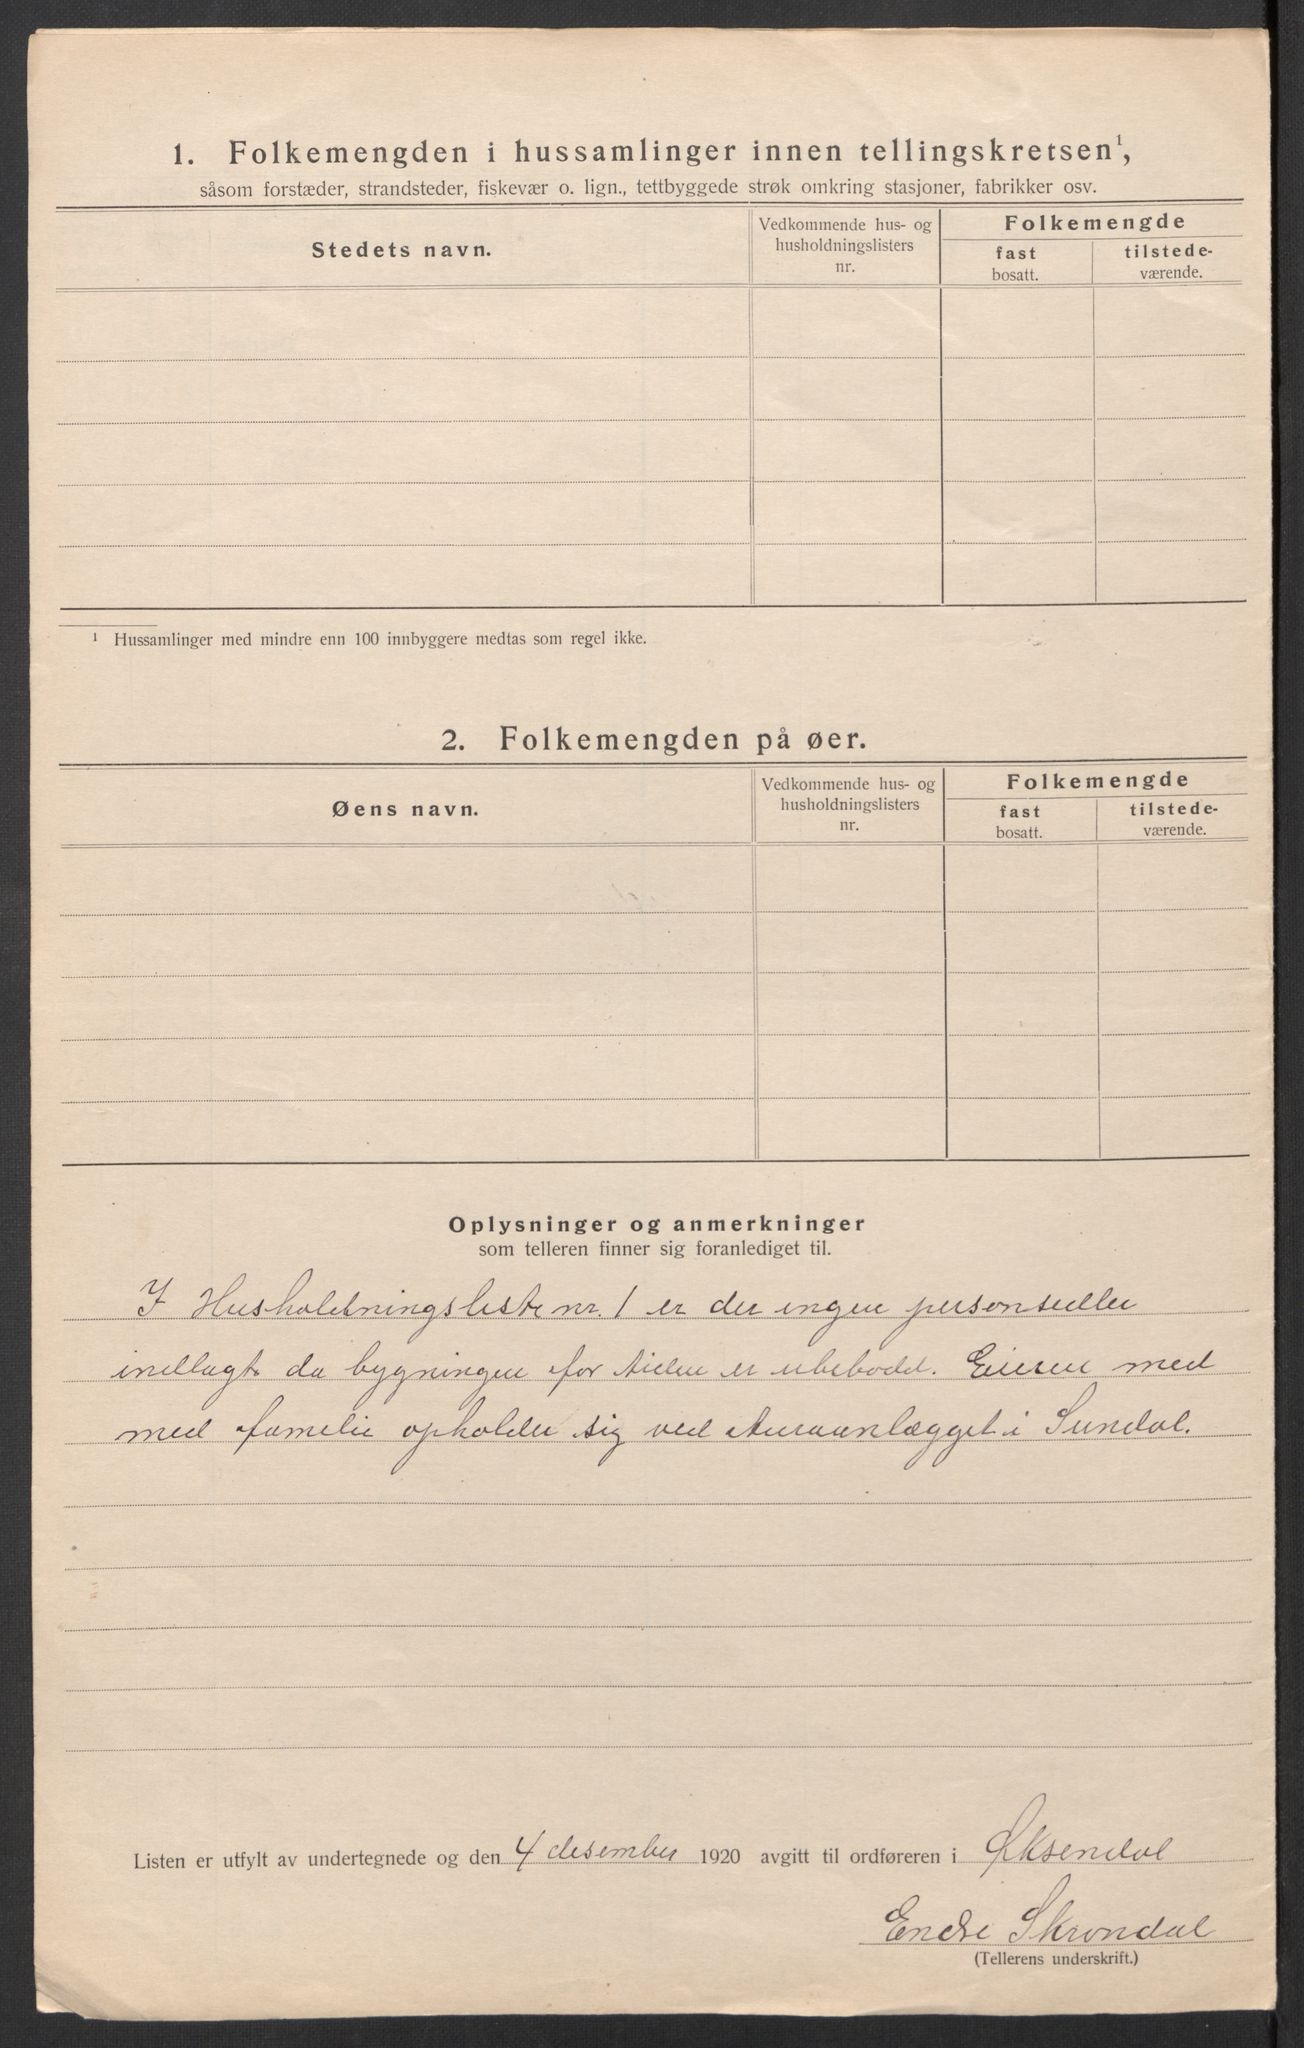 1. Folkemengden i hussamlinger innen tellingskretsen¹,
såsom forstæder, strandsteder, fiskevær o. lign., tettbyggede strøk omkring stasjoner, fabrikker osv.
Stedets navn.
Vedkommende hus- og
husholdningslisters
nr.
Folkemengde
fast
bosatt.
tilstede-
værende.
¹ Hussamlinger med mindre enn 100 innbyggere medtas som regel ikke.
2. Folkemengden på øer.
Øens navn.
Vedkommende hus- og
husholdningslisters
nr.
Folkemengde
fast
bosatt.
tilstede-
værende.
Oplysninger og anmerkninger
som telleren finner sig foranlediget til.
I Husholdningsliste nr. 1 er der ingen personsedler
indlagt da bygningen for tiden er ubebodd. Eieren med
med famelie opholder sig ved Auraanlægget i Sundal.
Listen er utfylt av undertegnede og den 4 desember 1920 avgitt til ordføreren i Øksendal
Endre Skrondal
(Tellerens underskrift.)